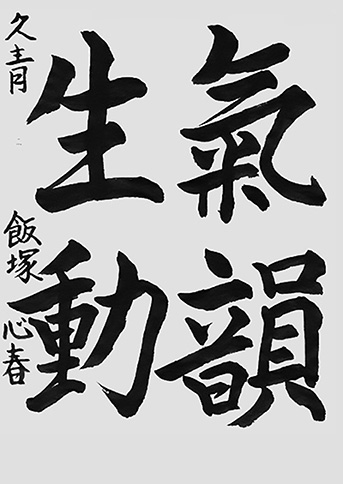 氣韻
生動
久青 飯塚心春